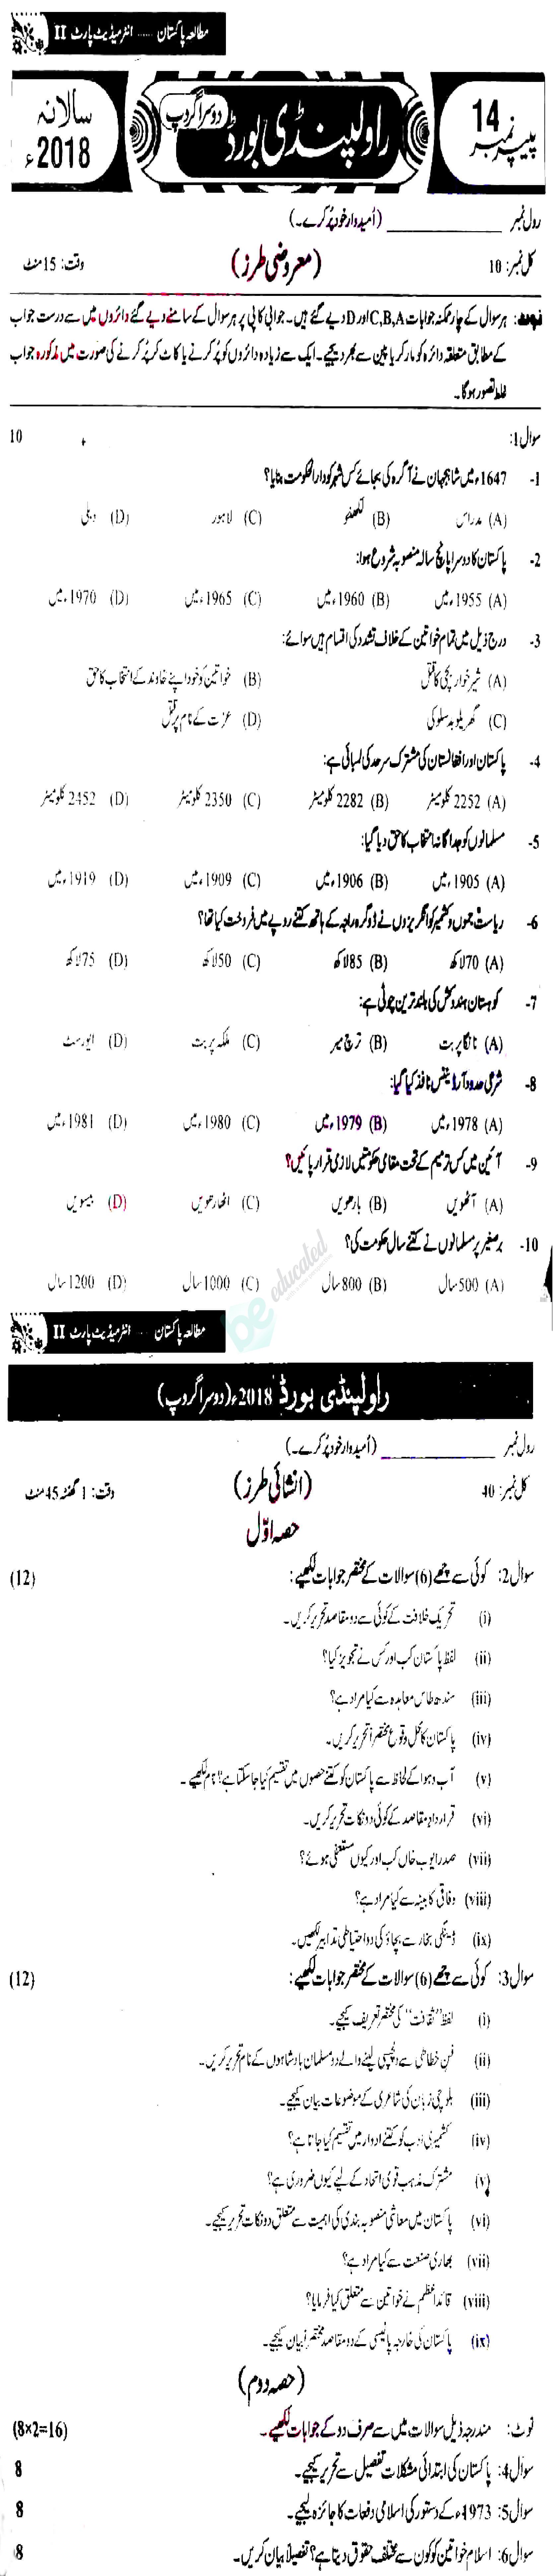 مطالعہ پاکستان ...... انٹرمیڈیٹ پارٹ II
پیپر نمبر 14
راولپنڈی بورڈ دوسرا گروپ
سالانہ 2018ء
رول نمبر ____________ (اُمیدوار خود پُر کرے۔)
کل نمبر: 10 (معروضی طرز) وقت: 15 منٹ
نوٹ: ہر سوال کے چار ممکنہ جوابات C,B,A اور D دیے گئے ہیں۔ جوابی کاپی پر ہر سوال کے سامنے دیے گئے دائروں میں سے درست جواب
کے مطابق متعلقہ دائرہ کو مارکر یا پین سے بھر دیجیے۔ ایک سے زیادہ دائروں کو پُر کرنے یا کاٹ کر پُر کرنے کی صورت میں مذکورہ جواب
غلط تصور ہوگا۔
سوال 1: 10
1- 1647ء میں شاہجہان نے آگرہ کی بجائے کس شہر کو دارالحکومت بنایا؟
(A) مدراس (B) لکھنؤ (C) لاہور (D) دہلی
2- پاکستان کا دوسرا پانچ سالہ منصوبہ شروع ہوا:
(A) 1955ء میں (B) 1960ء میں (C) 1965ء میں (D) 1970ء میں
3- درج ذیل میں تمام خواتین کے خلاف تشدد کی اقسام ہیں سوائے:
(A) شیر خوار بچی کا قتل (B) خواتین کو خود اپنے خاوند کے انتخاب کا حق
(C) گھریلو بدسلوکی (D) عزت کے نام پر قتل
4- پاکستان اور افغانستان کی مشترک سرحد کی لمبائی ہے:
(A) 2252 کلومیٹر (B) 2282 کلومیٹر (C) 2350 کلومیٹر (D) 2452 کلومیٹر
5- مسلمانوں کو جداگانہ انتخاب کا حق دیا گیا:
(A) 1905ء میں (B) 1906ء میں (C) 1909ء میں (D) 1919ء میں
6- ریاست جموں و کشمیر کو انگریزوں نے ڈوگرہ راجہ کے ہاتھ کتنے روپے میں فروخت کیا تھا؟
(A) 70 لاکھ (B) 85 لاکھ (C) 50 لاکھ (D) 75 لاکھ
7- کوہستان ہندوکش کی بلند ترین چوٹی ہے:
(A) نانگا پربت (B) ترچ میر (C) ملکہ پربت (D) ایورسٹ
8- شرعی حدود آرڈیننس نافذ کیا گیا:
(A) 1978ء میں (B) 1979ء میں (C) 1980ء میں (D) 1981ء میں
9- آئین میں کس ترمیم کے تحت مقامی حکومتیں لازمی قرار پائیں؟
(A) آٹھویں (B) بارھویں (C) اٹھارھویں (D) بیسویں
10- برصغیر پر مسلمانوں نے کتنے سال حکومت کی؟
(A) 500 سال (B) 800 سال (C) 1000 سال (D) 1200 سال
be educated
مطالعہ پاکستان ...... انٹرمیڈیٹ پارٹ II
راولپنڈی بورڈ 2018ء (دوسرا گروپ)
رول نمبر ____________ (اُمیدوار خود پُر کرے۔)
کل نمبر: 40 (انشائی طرز) وقت: 1 گھنٹہ 45 منٹ
حصہ اوّل
سوال 2: کوئی سے چھے (6) سوالات کے مختصر جوابات لکھیے: (12)
(i) تحریک خلافت کے کوئی سے دو مقاصد تحریر کریں۔
(ii) لفظ پاکستان کب اور کس نے تجویز کیا؟
(iii) سندھ طاس معاہدہ سے کیا مراد ہے؟
(iv) پاکستان کا محل وقوع مختصراً تحریر کریں۔
(v) آب و ہوا کے لحاظ سے پاکستان کو کتنے حصوں میں تقسیم کیا جا سکتا ہے؟ نام لکھیے۔
(vi) قراردادِ مقاصد کے کوئی دو نکات تحریر کریں۔
(vii) صدر ایوب خاں کب اور کیوں مستعفی ہوئے؟
(viii) وفاقی کابینہ سے کیا مراد ہے؟
(ix) ڈینگی بخار سے بچاؤ کی دو احتیاطی تدابیر لکھیں۔
سوال 3: کوئی سے چھے (6) سوالات کے مختصر جوابات لکھیے: (12)
(i) لفظ "ثقافت" کی مختصر تعریف کیجیے۔
(ii) فنِ خطاطی سے دلچسپی لینے والے دو مسلمان بادشاہوں کے نام تحریر کریں۔
(iii) بلوچی زبان کی شاعری کے موضوعات بیان کیجیے۔
(iv) کشمیری ادب کو کتنے ادوار میں تقسیم کیا جاتا ہے؟
(v) مشترک مذہب قومی اتحاد کے لیے کیوں ضروری ہے؟
(vi) پاکستان میں معاشی منصوبہ بندی کی اہمیت سے متعلق دو نکات تحریر کیجیے۔
(vii) بھاری صنعت سے کیا مراد ہے؟
(viii) قائداعظم نے خواتین سے متعلق کیا فرمایا؟
(ix) پاکستان کی خارجہ پالیسی کے دو مقاصد مختصراً بیان کیجیے۔
(حصہ دوم)
نوٹ: مندرجہ ذیل سوالات میں سے صرف دو کے جوابات لکھیے۔ (8×2=16)
سوال 4: پاکستان کی ابتدائی مشکلات تفصیل سے تحریر کیجیے۔ 8
سوال 5: 1973ء کے دستور کی اسلامی دفعات کا جائزہ لیجیے۔ 8
سوال 6: اسلام خواتین کو کون سے مختلف حقوق دیتا ہے؟ تفصیلاً بیان کریں۔ 8